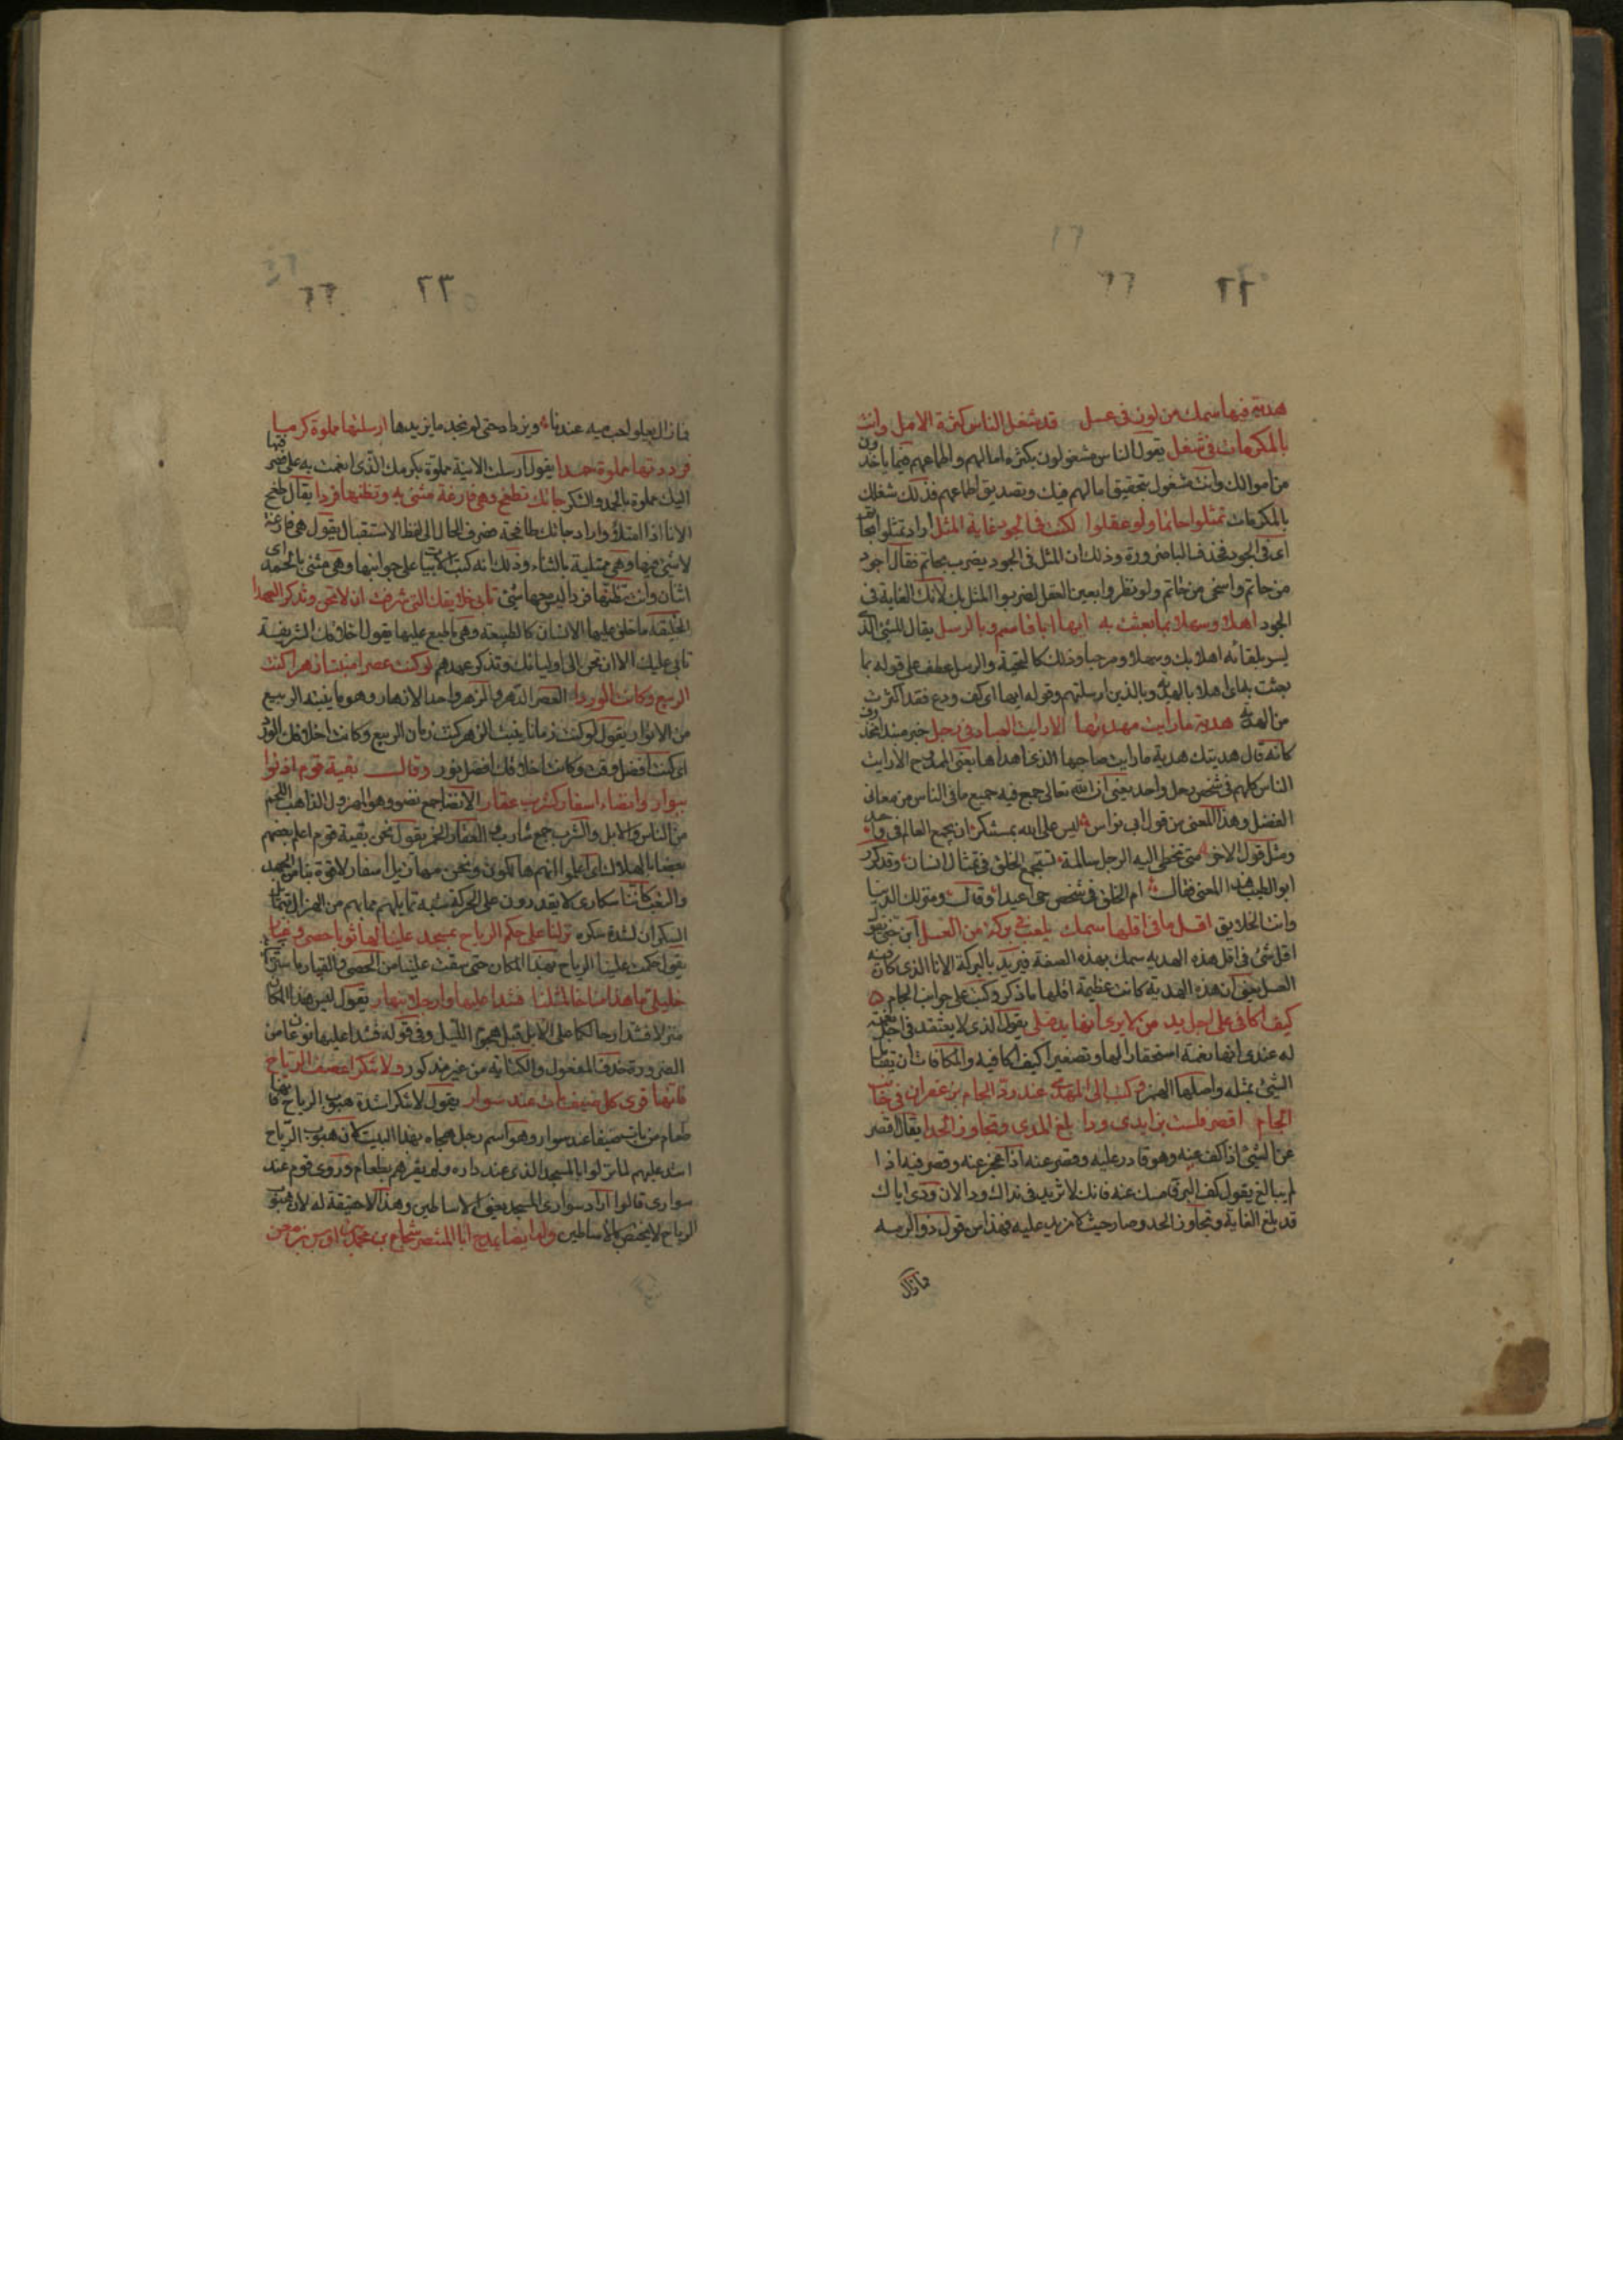 ٢٢
هدية فيها سمك من لوز فى عسل قد شغل الناس كثرة الامل وانت
بالمكرمات فى شغل يقول الناس مشغولون بكثرة امالهم واطماعهم فيما ياخذون
من اموالك وانت مشغول بتحقيق امالهم فيك وتصديق اطماعهم فذلك شغلك
بالمكرمات تمثلوا حاتما ولو عقلوا لكنت فى الجود غاية المثل اراد تمثلوا بحاتم
اى فى الجود فحذف الباء ضرورة وذلك ان المثل فى الجود يضرب بحاتم فقال اجود
من حاتم واسخى من حاتم ولو نظروا بعين العقل لضربوا المثل بك لانك الغاية فى
الجود اهلا وسهلا بما بعثت به ايها ابا قاسم وبالرسل يقال للشئ الذى
يسر بلقائه اهلا بك وسهلا ومرحبا وذلك كالتحية والرسل عطف على قوله بما
بعثت به اى اهلا بالهدية وبالذين ارسلتهم وقوله ايها اى كف ودع فقد اكثرت
من الهدية هدية ما رايت مهديها الا رايت العباد فى رجل خبر مبتدا محذوف
كانه قال هديتك هدية ما رايت صاحبها الذى اهداها يعنى الممدوح الا رايت
الناس كلهم فى شخص رجل واحد يعنى ان الله تعالى جمع فيه جميع ما فى الناس من معانى
الفضل وهذا المعنى من قول ابى نواس ليس على الله بمستنكر ان يجمع العالم فى واحد
ومثل قول الاخر متى تخطى اليه الرجل سالمة تستجمع الخلق فى تمثال انسان وقد كرر
ابو الطيب هذا المعنى فقال ام الخلق فى شخص حى اعيدا وقال ومنزلك الدنيا
وانت الخلايق اقل ما فى اقلها سمك يلعب فى بركة من العسل ابن جنى يقول
اقل شئ فى اقل هذه الهديه سمك بهذه الصفة فيريد بالبركة الانا الذى كان فيه
العسل يعنى ان هذه الهدية كانت عظيمة اقلها ما ذكر وكتب على جوانب الجام
كيف اكافى على اجل يد من لا يرى انها يد قبلى يقول الذى لا يعتقد فى اجل نعمة
له عندى انها نعمة استحقارا لها وتصغيرا كيف اكافيه والمكافات ان تقابل
الشئ بمثله واصلها الهمز وكتب الى المهدى عند رد الجام بزعفران فى جانب
الجام اقصر فلست بزايدى ودا بلغ المدى وتجاوز الحدا يقال اقصر
عن الشئ اذا كف عنه وهو قادر عليه وقصر عنه اذا عجز عنه وقصر فيه اذا
لم يبالغ يقول كف البر وامسك عنه فانك لا تزيد فى نداك ودا لان ودى اياك
قد بلغ الغاية وتجاوز الحد وصار حيث لا مزيد عليه فهذا من قول ذو الرمه
فما زال
٢٣
فما زال يعلو حب ميه عندنا ويزداد حتى لم نجد ما يزيدها ارسلتها مملوة كرما
فرددتها مملوة حمدا يقول ارسلت الانية مملوة بكرمك الذى انعمت به على فصرفتها
اليك مملوة بالحمد والشكر جاتك تطفح وهى فارغة مثنى به وتظنها فردا يقال طفح
الانا اذا امتلا واراد جاتك طافحة فصرف الحال الى لفظ الاستقبال يقول هى فارغة
لا شئ فيها وهى ممتلية بالثناء وذلك انه كتب الابيات على جوانبها وهى مثنى بالحمد اى
اثنان وانت تظنها فردا ليس معها شئ تابى خلايقك التى شرفت ان لا تحن وتذكر العهدا
الخليقة ما خلق عليها الانسان كالطبيعة وهى ما طبع عليها يقول اخلاقك الشريفة
تابى عليك الا ان تحن الى اوليائك وتذكر عهدهم لو كنت عصرا منبتا زهرا كنت
الربيع وكانت الوردا العصر الدهر والزهر واحد الازهار وهو ما ينبته الربيع
من الانوار يقول لو كنت زمانا ينبت الزهر كنت زمان الربيع وكانت اخلاقك الورد
اى كنت افضل وقت وكانت اخلاقك افضل نور وقال بقية قوم اذنوا
ببوار وانضاء اسفار كشرب عقار الانضا جمع نضو وهو المهزول الذاهب اللحم
من الناس والابل والشرب جمع شارب والعقار الخمر يقول نحن بقية قوم اعلم بعضهم
بعضا بالهلاك اى علموا انهم هالكون ونحن مهازيل اسفار لا قوة بنا من الجهد
والتعب كاننا سكارى لا يقدرون على الحركة شبه تمايلهم مما بهم من الهزال بتمايل
السكران لشدة سكره نزلنا على حكم الرياح بمسجد علينا لها ثوبا حصى وغبار
يقول حكمت علينا الرياح بهذا المكان حتى سفت علينا من الحصى والغبار ما سترنا
خليلى ما هذا مناخا لمثلنا فشدا عليها وارحلا بنهار يقول ليس هذا المكان
منزلا فشدا رحالكما على الابل قبل هجوم الليل وفى قوله فشدا عليها نوعان من
الضرورة حذف المفعول والكناية من غير مذكور ولا تنكرا عصف الرياح
فانها قرى كل ضيف بات عند سوار يقول لا تنكرا شدة هبوب الرياح فانها
طعام من بات ضيفا عند سوار وهو اسم رجل هجاه بهذا البيت كان هبوب الرياح
اشتد عليهم لما نزلوا بالمسجد الذى عند داره ولم يقرهم بطعام وروى قوم عند
سوارى قالوا اراد سوارى المسجد يعنى الاساطين وهذا لا حقيقة له لان هبوب
الرياح لا يختص بالاساطين وله ايضا يمدح ابا المنتصر شجاع بن محمد بن اوس بن معن